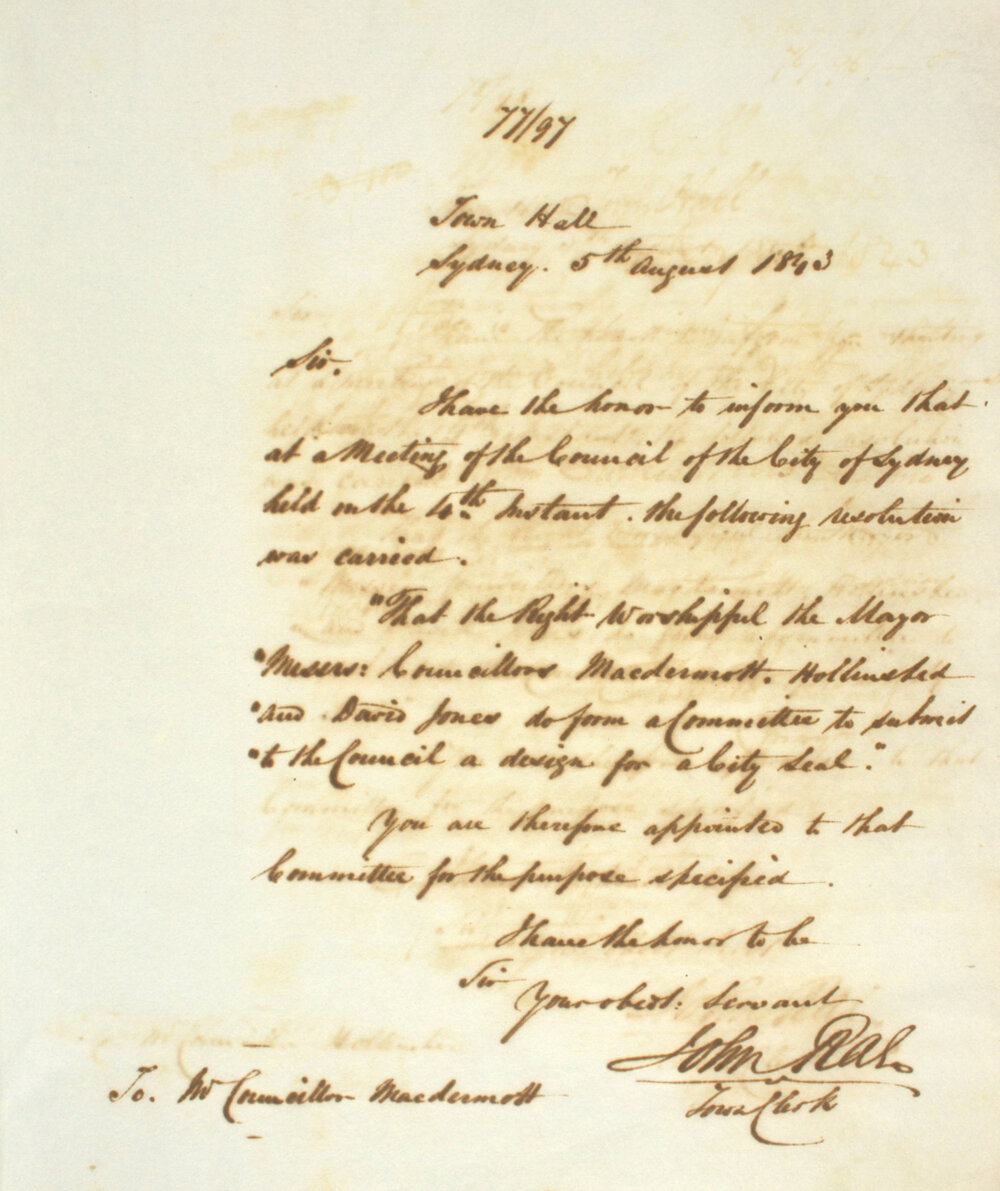 77/97
Town Hall
Sydney. 5th August 1843
Sir.
I have the honor to inform you that
at a Meeting of the Council of the City of Sydney
held on the 4th Instant. the following resolution
was carried.
"That the Right Worshipful the Mayor
"Messrs: Councillors Macdermott. Hollinshed
"and David Jones do form a Committee to submit
"to the Council a design for a City Seal."
You are therefore appointed to that
Committee for the purpose specified.
I have the honor to be
Sir
Your obedt: Servant
John Rae
Town Clerk
To. Mr Councillor Macdermott